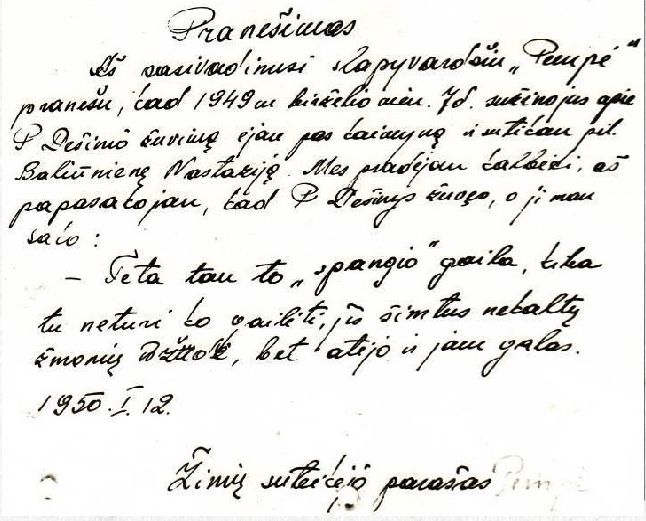 Pranešimas
Aš pasivadinusi slapyvardžiu „Pempė"
pranešu, kad 1949 m birželio mėn. 7 d. sužinojus apie
P Dešinio žuvimą ėjau pas kaimyną ir sutikau pil.
Baliūnienę Nastaziją. Mes pradėjom kalbėti, aš
papasakojau, kad P Dešinys žuvo, o ji man
sako:
– Teta tau to „spangio" gaila,
tu neturi ko gailėti, jis šimtus nekaltų
žmonių, bet atėjo ir jam galas.
1950.I.12.
Žinių suteikėjo parašas Pempė